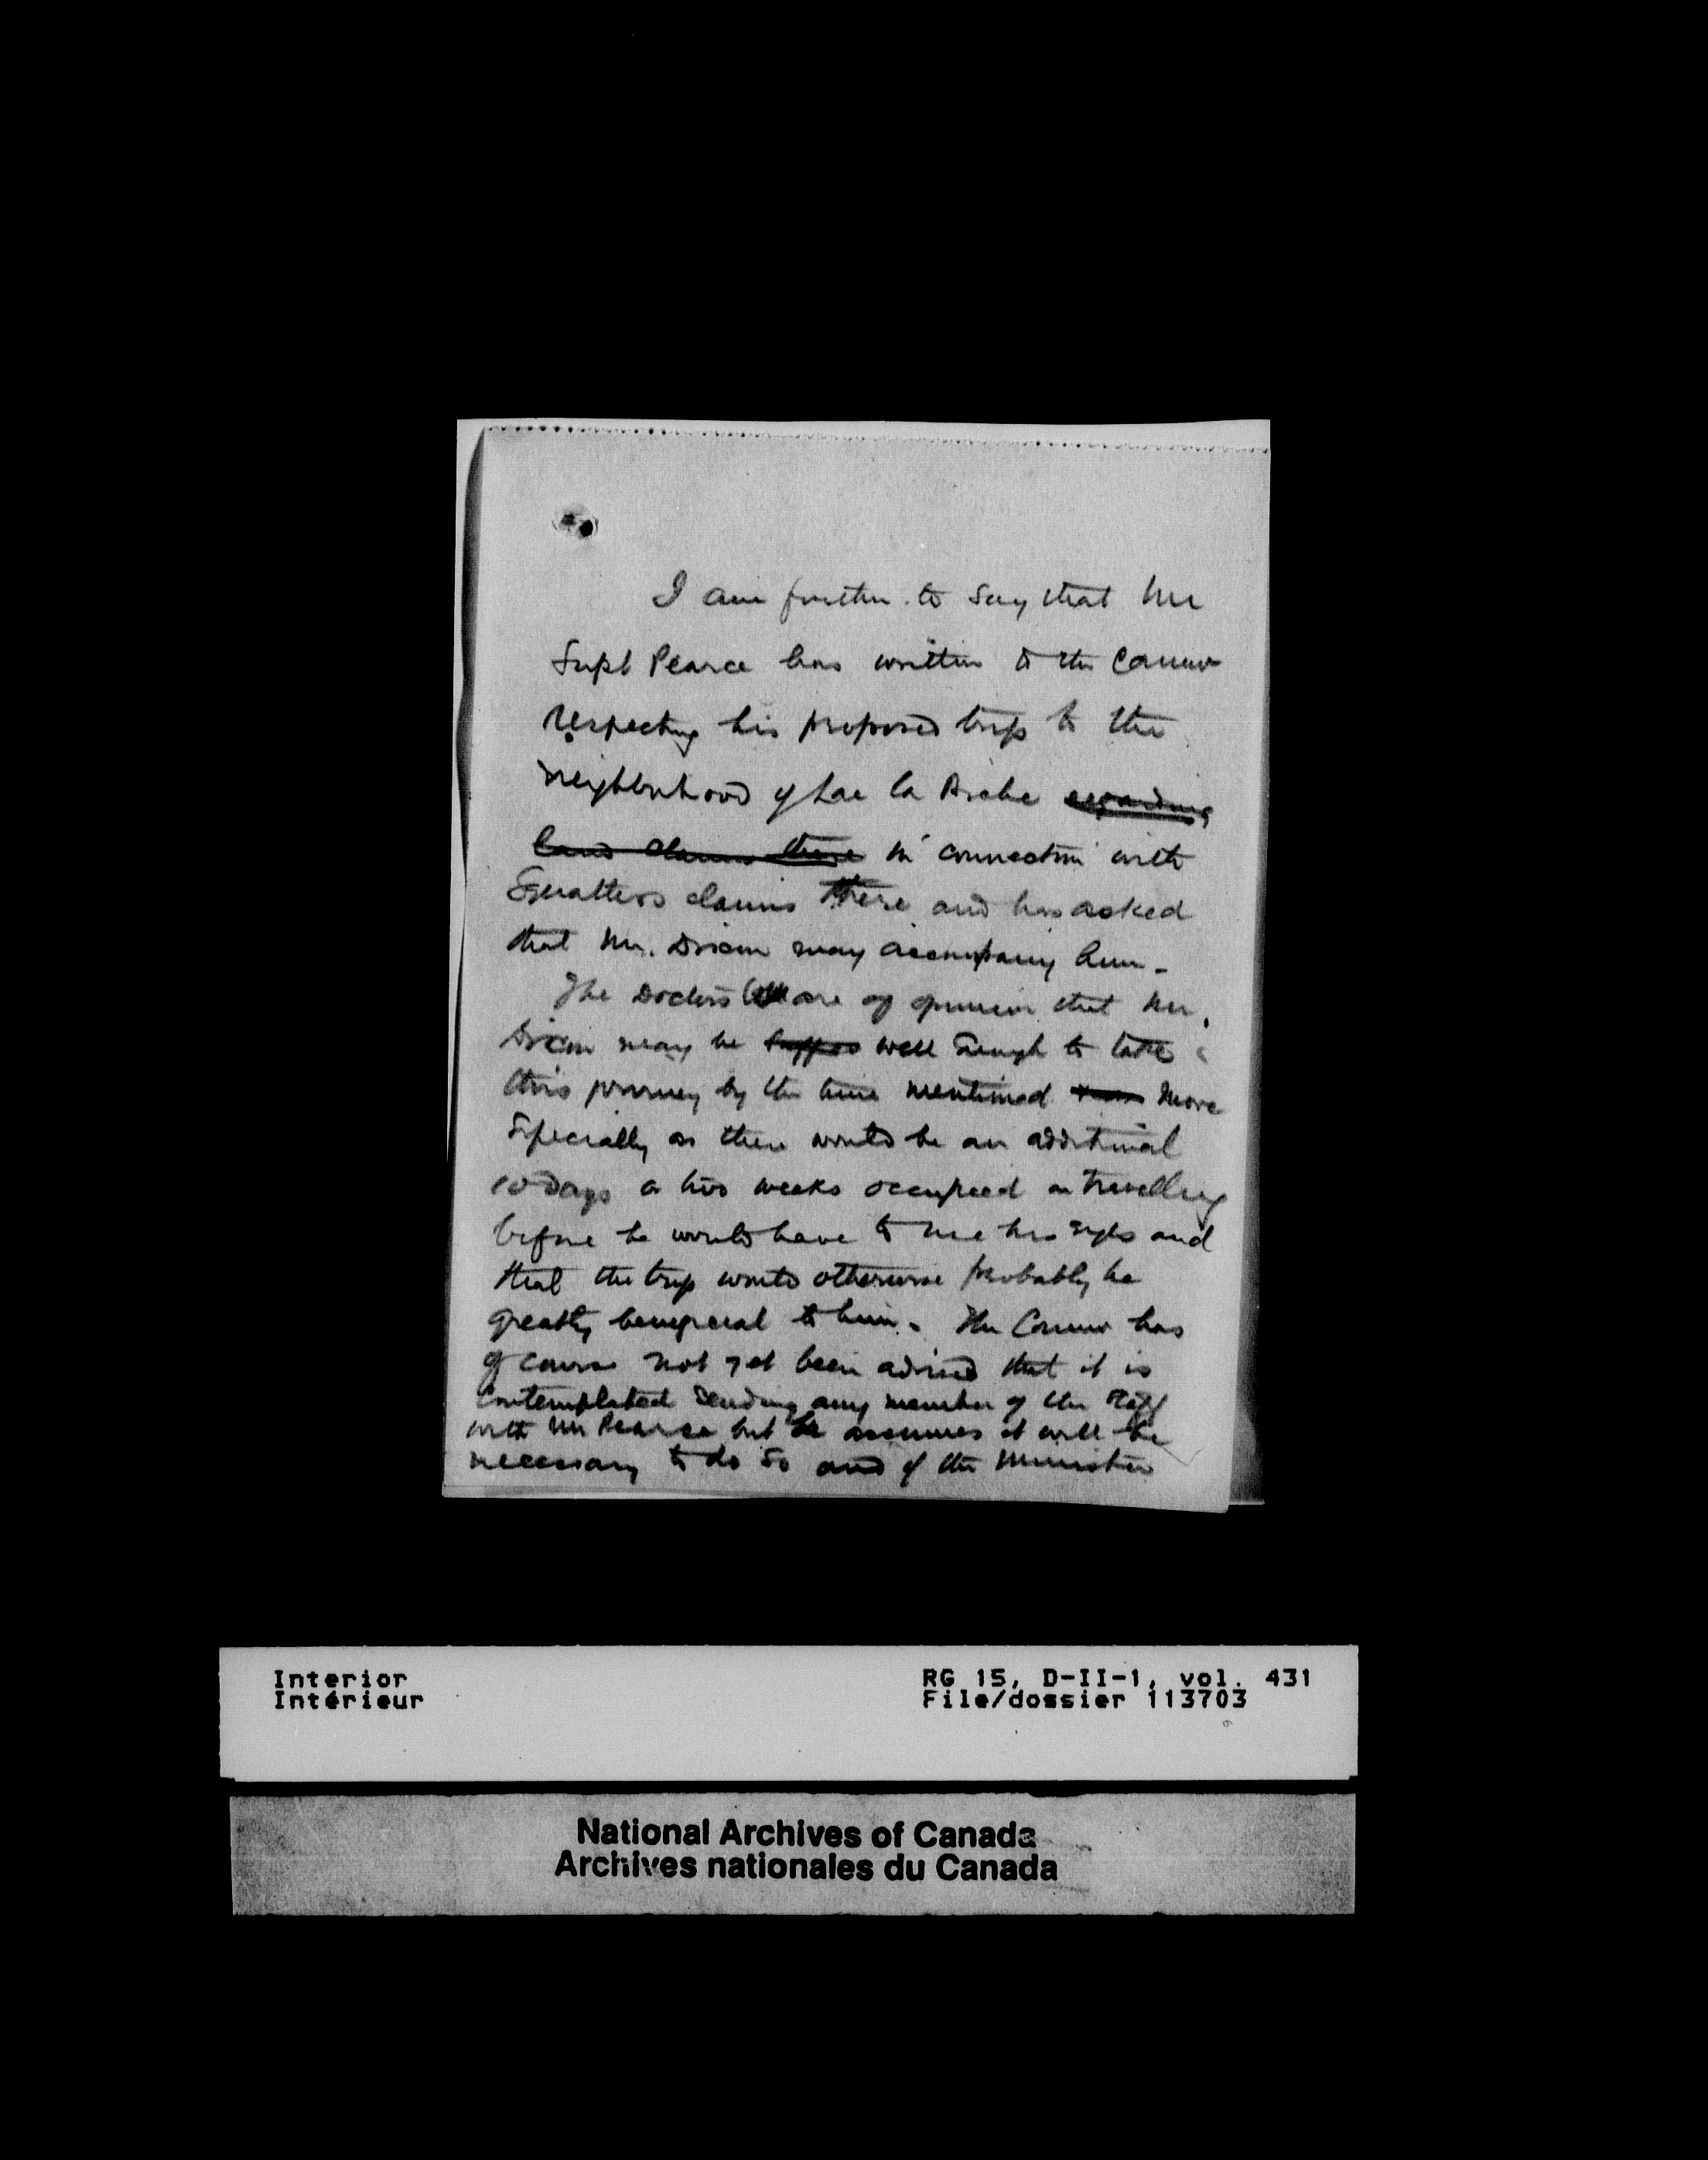 I am further to say that Mr
Supt Pearce has written to the Commr
respecting his proposed trip to the
neighborhood of Lac la Biche regarding
land claims there in connection with
Squatters claims there and has asked
that Mr. Dixon may accompany him.
The Doctors are of opinion that Mr.
Dixon may be well enough to take
this journey by the time mentioned more
Especially as there would be an additional
10 days or two weeks occupied in travelling
before he would have to use his eyes and
that the trip would otherwise probably be
greatly beneficial to him. The Commr has
of course not yet been advised that it is
contemplated sending any member of the staff
with Mr Pearce but he assumes it will be
necessary to do so and if the Minister
Interior
Intérieur
RG 15, D-II-1, vol. 431
File/dossier 113703
National Archives of Canada
Archives nationales du Canada